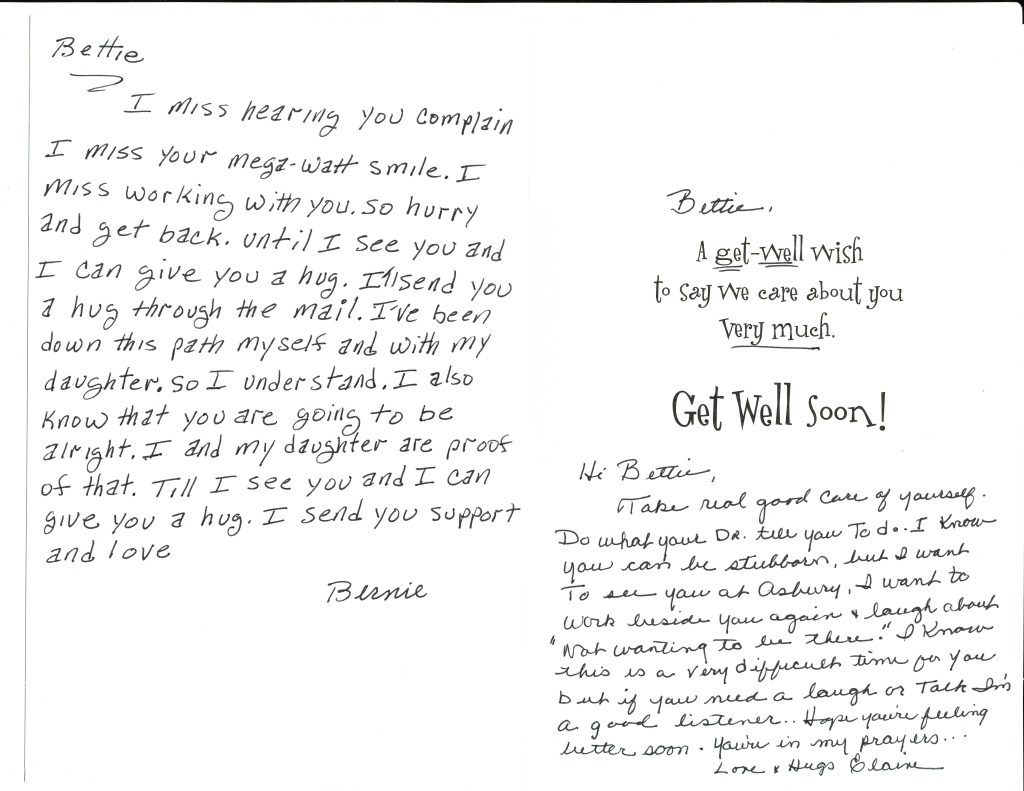 Bettie
I miss hearing you complain
I miss your mega-watt smile. I
miss working with you. so hurry
and get back. until I see you and
I can give you a hug. I'll send you
a hug through the mail. I've been
down this path myself and with my
daughter. so I understand. I also
know that you are going to be
alright. I and my daughter are proof
of that. Till I see you and I can
give you a hug. I send you support
and love
Bernie
Bettie,
A get-well wish
to say we care about you
very much.
Get Well Soon!
Hi Bettie,
Take real good care of yourself.
Do what your Dr. tell you To do.. I know
you can be stubborn, but I want
To see you at Asbury, I want to
work beside you again & laugh about
"Not wanting to be there." I know
this is a very difficult time for you
but if you need a laugh or Talk I'm
a good listener.. Hope you're feeling
better soon. You're in my prayers...
Love & Hugs Elaine